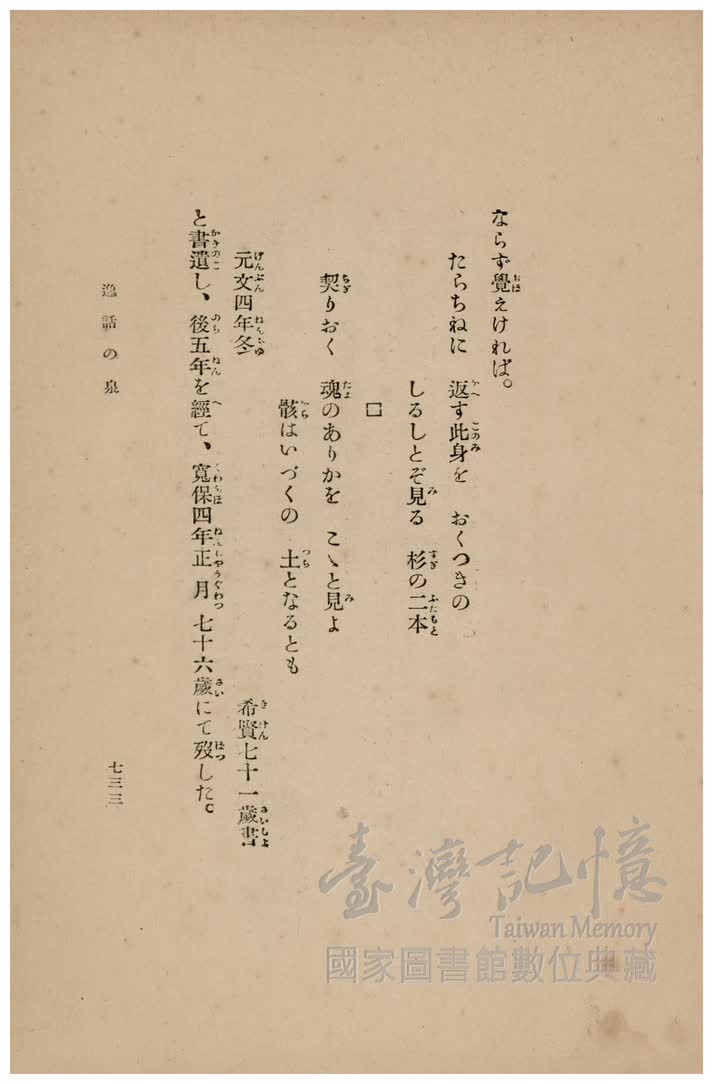 ならず覺えければ。
たらちねに　返す此身を　おくつきの
しるしとぞ見る　杉の二本
□
契りおく　魂のありかを　こゝと見よ
骸はいづくの　土となるとも
元文四年冬　希賢七十一歲書
と書遺し、後五年を經て、寬保四年正月七十六歲にて歿した。
逸話の泉
七三三
臺灣記憶
Taiwan Memory
國家圖書館數位典藏